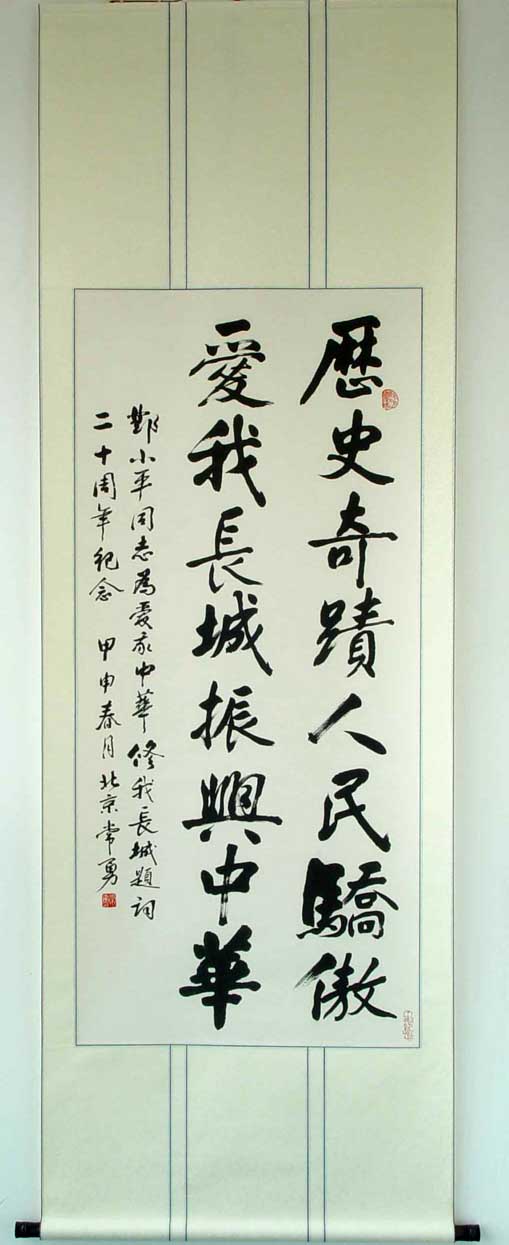 歷史奇蹟人民驕傲
愛我長城振興中華
鄧小平同志為愛我中華修我長城題詞
二十周年紀念 甲申春月北京常勇